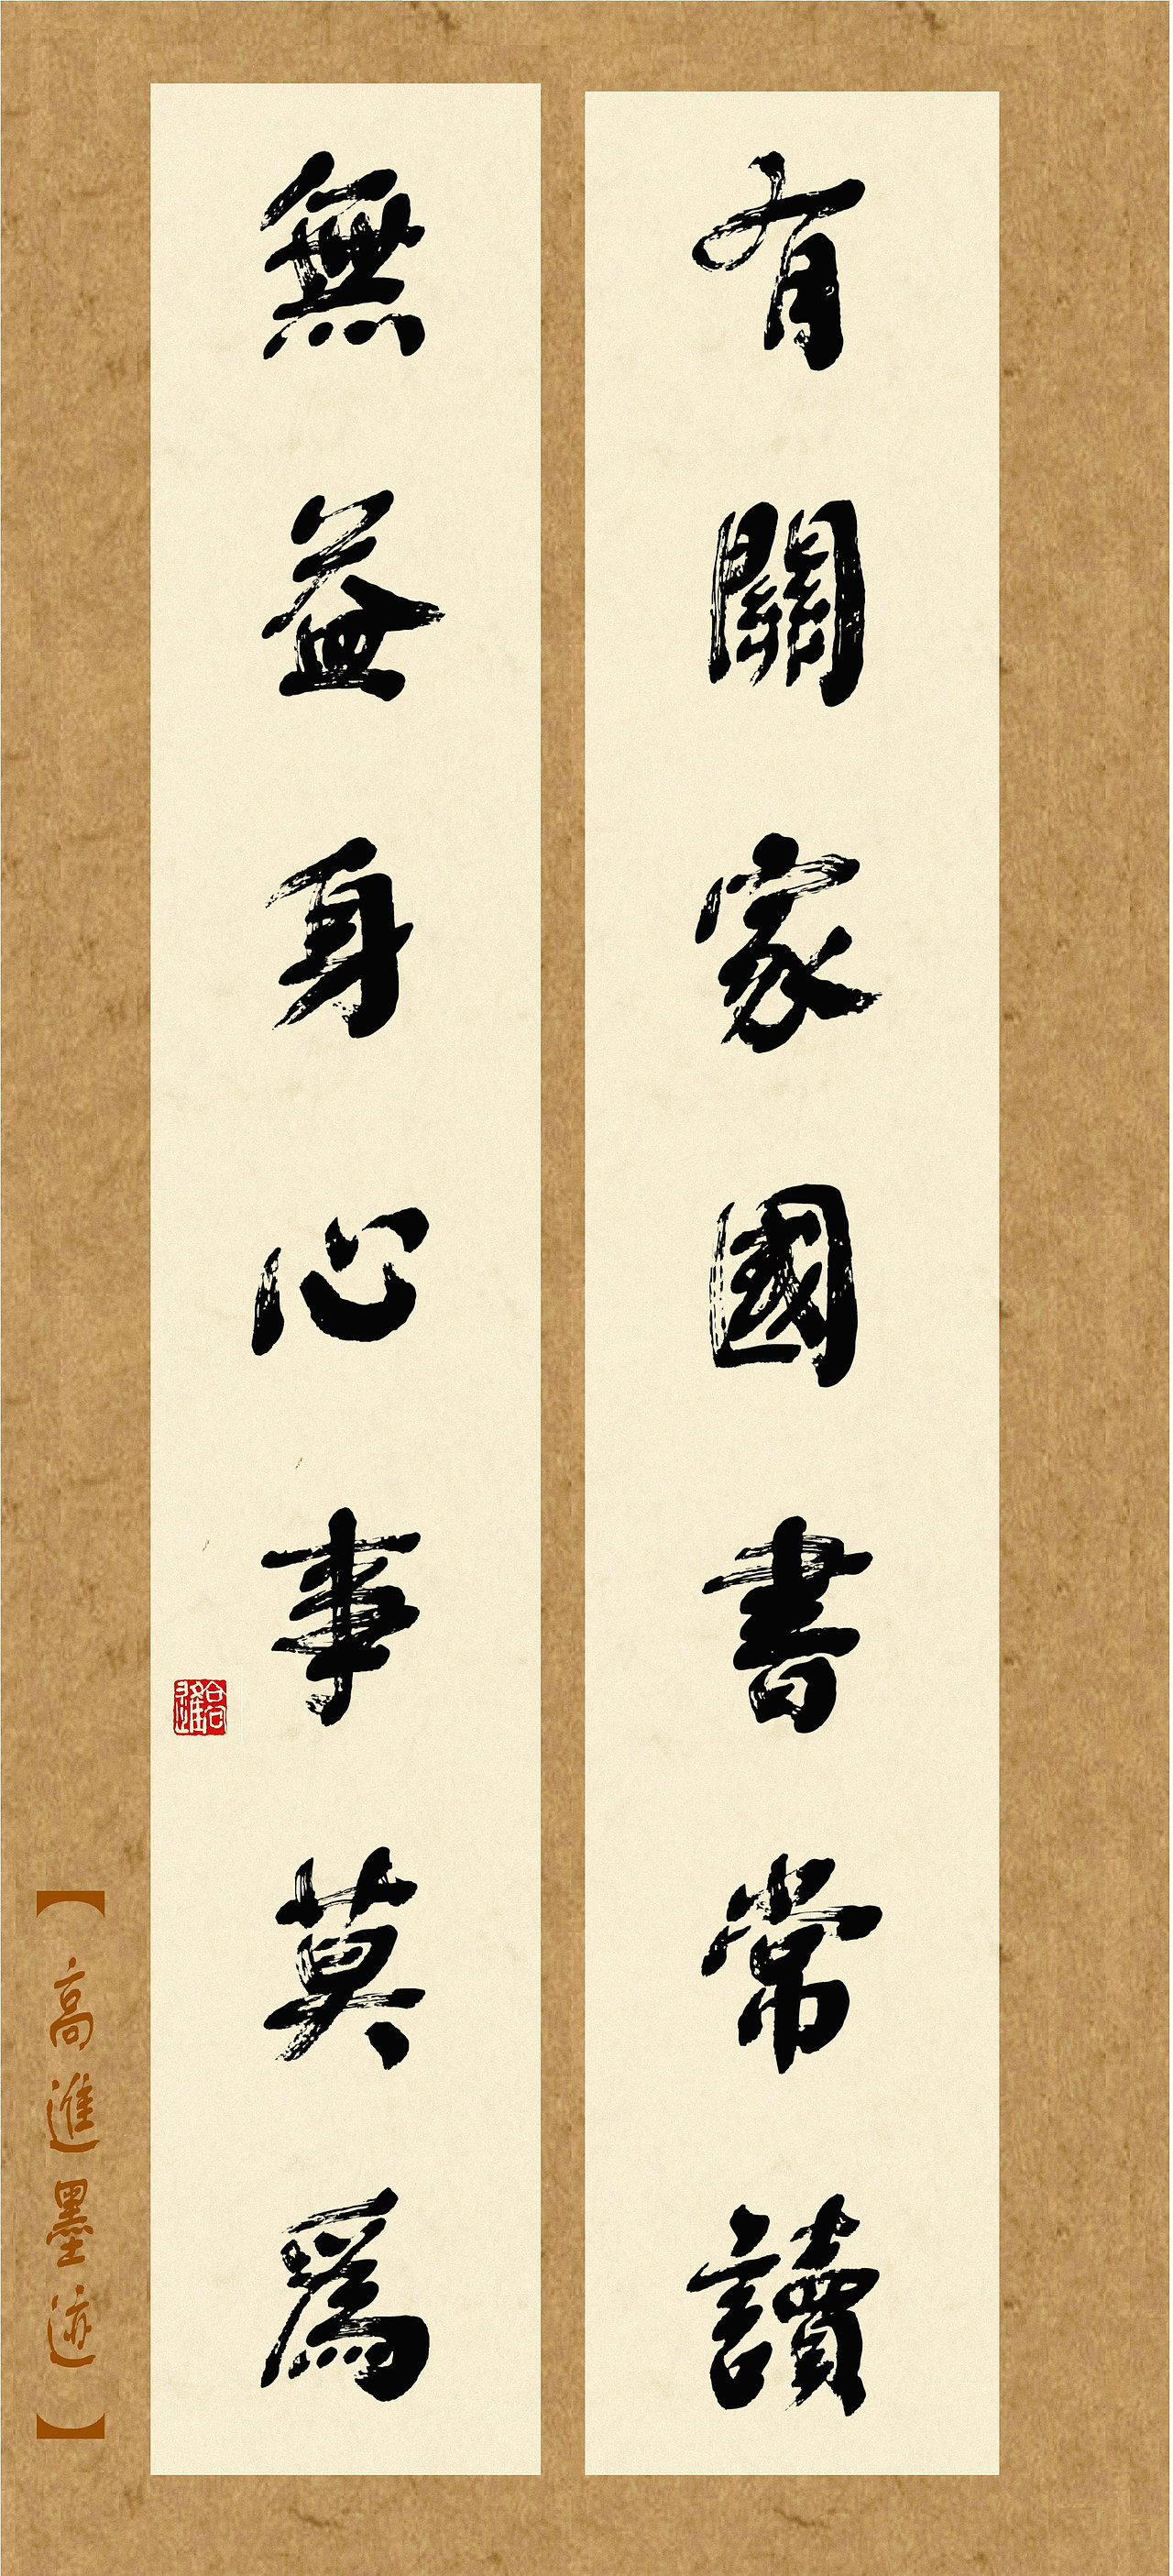 有關家國書常讀
無益身心事莫爲
【高進墨迹】